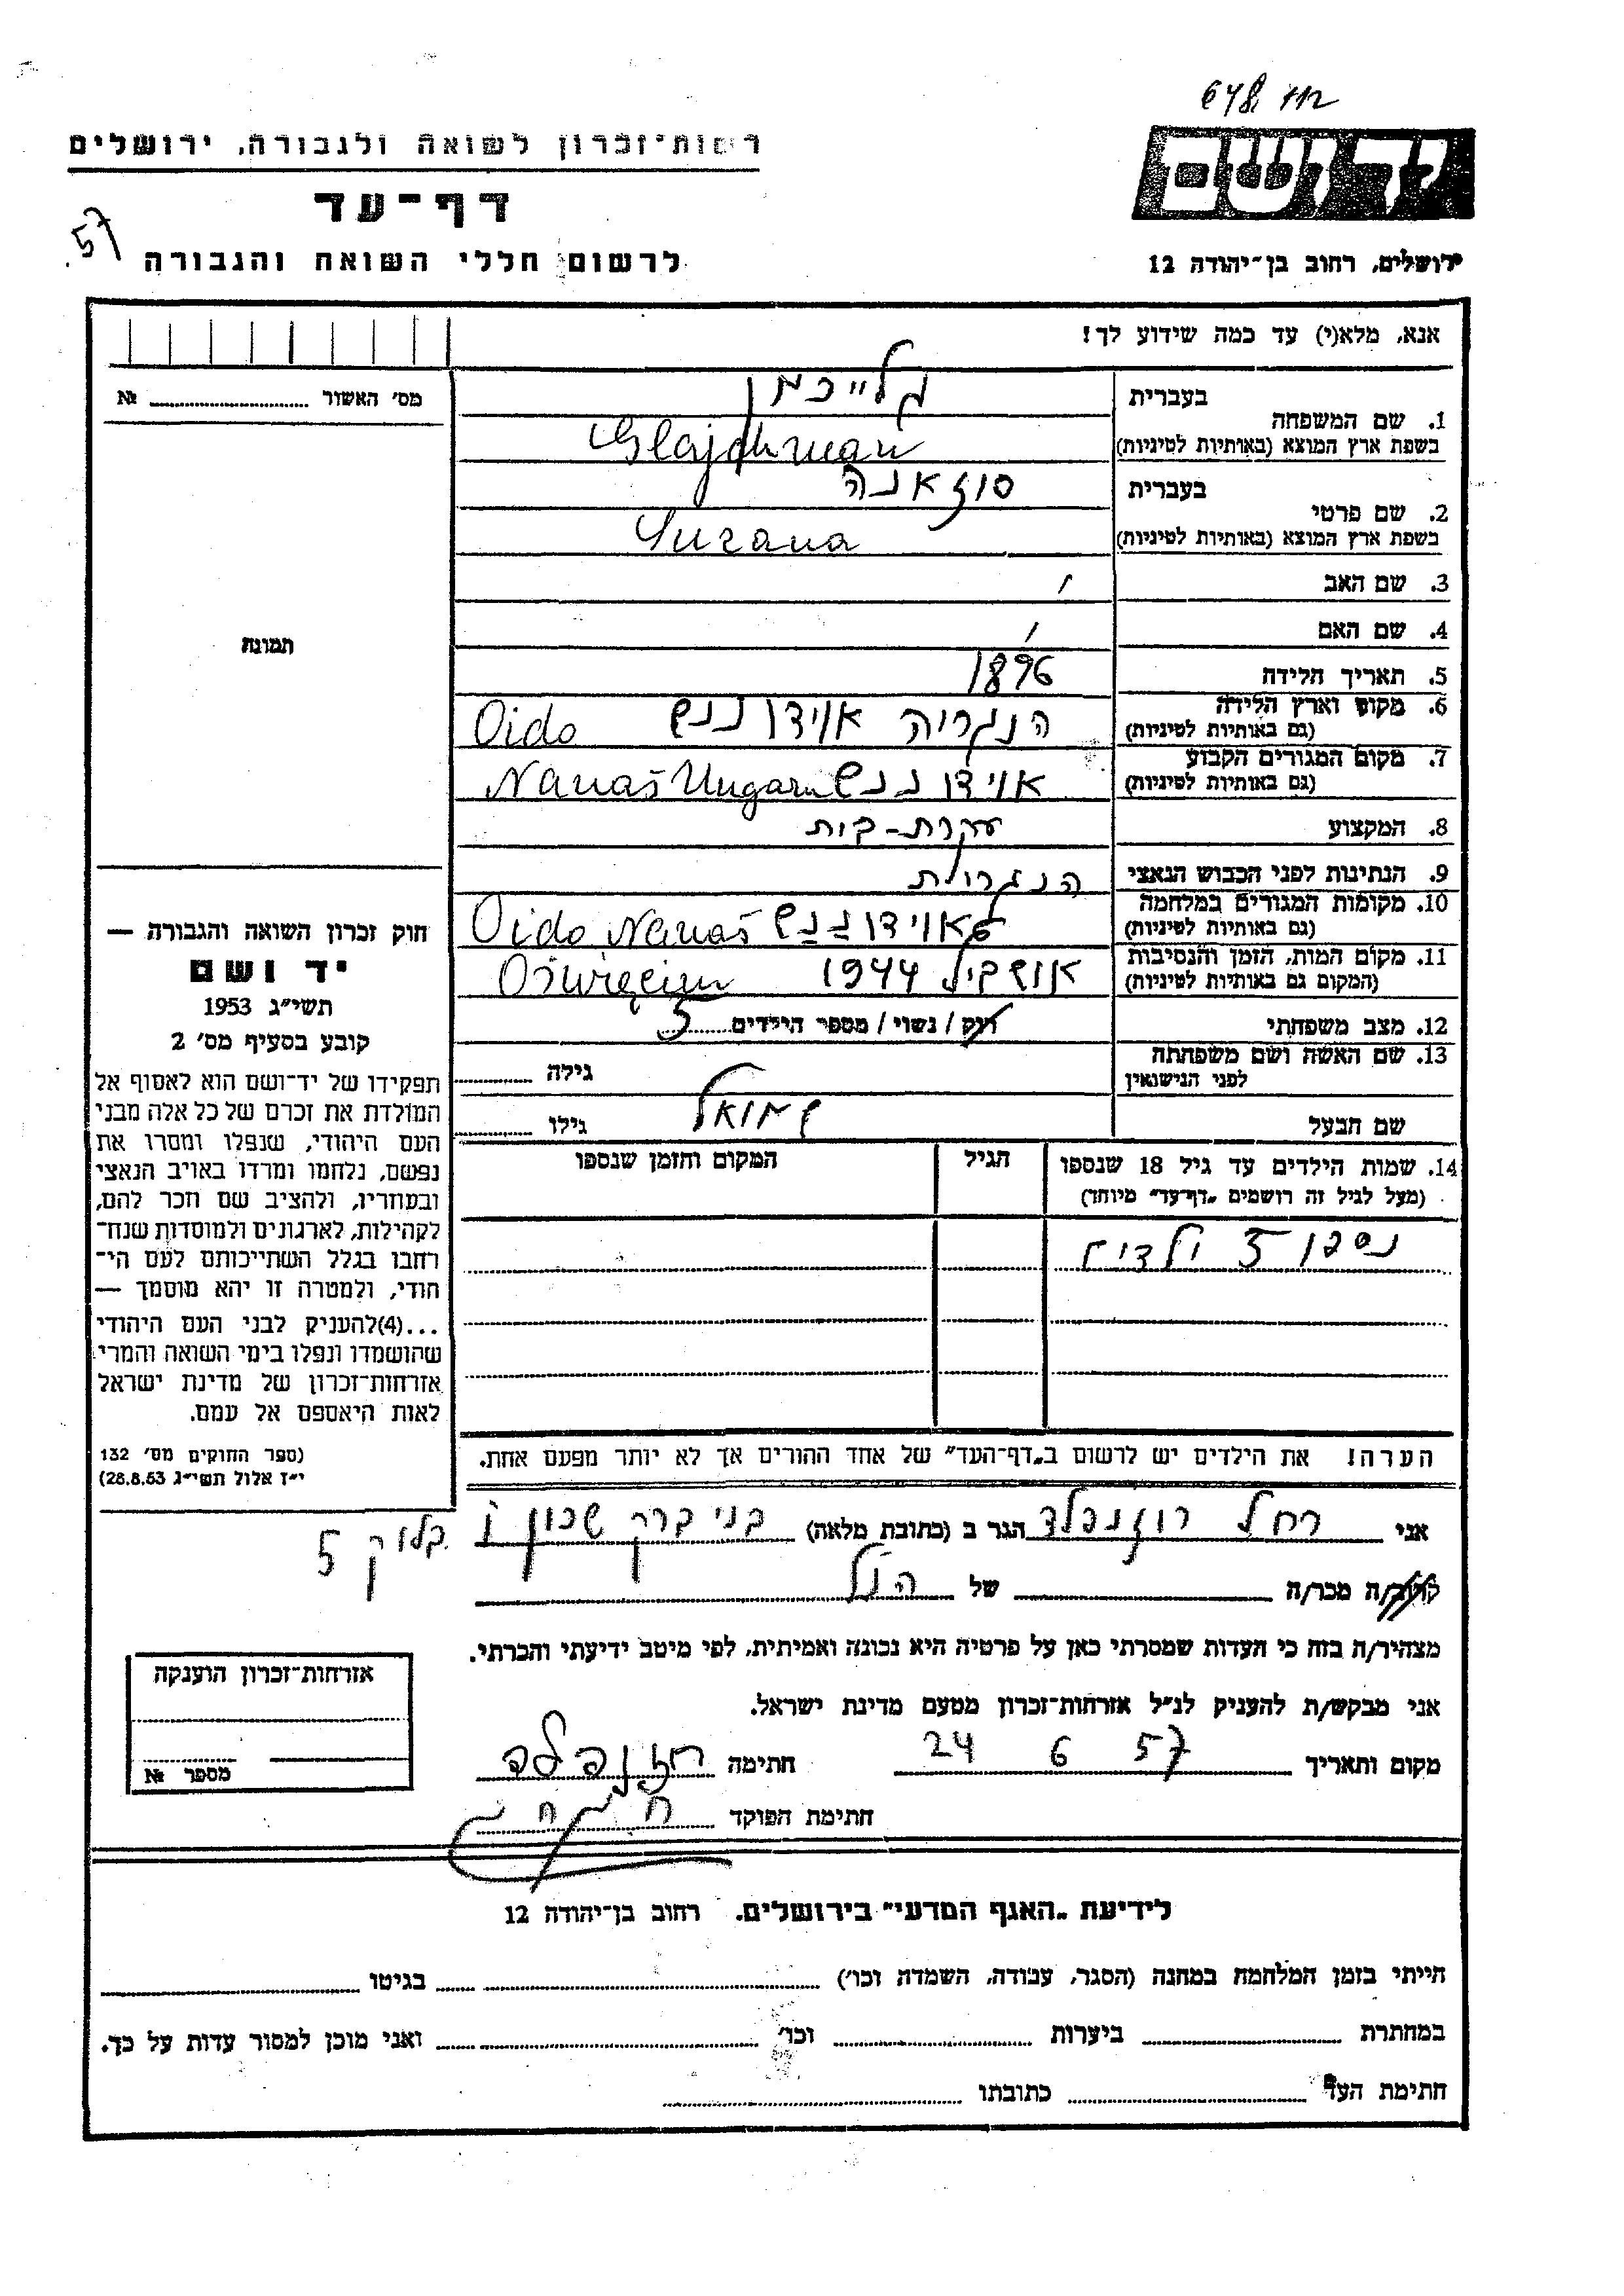 678 חת
רשות־זכרון לשואה ולגבורה, ירושלים
דף־עד
57
לרשום חללי השואה והגבורה
יד ושם
ירושלים, רחוב בן־יהודה 12
אנא, מלא(י) עד כמה שידוע לך!
מס׳ האשור № 
1. שם המשפחה בעברית גלייכמן
בשפת ארץ המוצא (באותיות לטיניות) Glajchman
2. שם פרטי בעברית סוזאנה
בשפת ארץ המוצא (באותיות לטיניות) Suzana
3. שם האב /
4. שם האם /
5. תאריך הלידה 1896
6. מקום וארץ הלידה (גם באותיות לטיניות) הנגריה אוידו ננש Oido
7. מקום המגורים הקבוע (גם באותיות לטיניות) אוידו ננש Nanaš Ungarn
8. המקצוע עקרת-בית
9. הנתינות לפני הכבוש הנאצי הנגרית
10. מקומות המגורים במלחמה (גם באותיות לטיניות) אוידו ננש Oido Nanaš
11. מקום המות, הזמן והנסיבות (המקום גם באותיות לטיניות) 1944 Oświęcim
12. מצב משפחתי רוק / נשוי / מספר הילדים 5
13. שם האשה ושם משפחתה לפני הנישואין גילה
שם הבעל שמואל גילו
14. שמות הילדים עד גיל 18 שנספו הגיל המקום והזמן שנספו
(מעל לגיל זה רושמים „דף־עד״ מיוחד)
נספו 3 ילדים
הערה! את הילדים יש לרשום ב„דף־העד״ של אחד ההורים אך לא יותר מפעם אחת.
תמונה
חוק זכרון השואה והגבורה —
יד ושם
תשי״ג 1953
קובע בסעיף מס׳ 2
תפקידו של יד־ושם הוא לאסוף אל
המולדת את זכרם של כל אלה מבני
העם היהודי, שנפלו ומסרו את
נפשם, נלחמו ומרדו באויב הנאצי
ובעוזריו, ולהציב שם וזכר להם,
לקהילות, לארגונים ולמוסדות שנח־
רחבו בגלל השתייכותם לעם הי־
הודי, ולמטרה זו יהא מוסמך —
...(4)להעניק לבני העם היהודי
שהושמדו ונפלו בימי השואה והמרי
אזרחות־זכרון של מדינת ישראל
לאות היאספם אל עמם.
(ספר החוקים מס׳ 132
י״ז אלול תשי״ג 28.8.53)
אני רחל רוזנפלד הגר ב (כתובת מלאה) בני ברק שכון ו בלוק 5
קרוב/ה מכר/ה של הנ״ל
מצהיר/ה בזה כי העדות שמסרתי כאן על פרטיה היא נכונה ואמיתית, לפי מיטב ידיעתי והכרתי.
אני מבקש/ת להעניק לנ״ל אזרחות־זכרון מטעם מדינת ישראל.
מקום ותאריך 24 6 57 חתימה רוזנפלד
חתימת הפוקד
אזרחות־זכרון הוענקה
מספר №
לידיעת „האגף המדעי״ בירושלים, רחוב בן־יהודה 12
הייתי בזמן המלחמה במחנה (הסגר, עבודה, השמדה וכו׳) בגיטו
במחתרת ביערות וכו׳ ואני מוכן למסור עדות על כך.
חתימת העד כתובתו